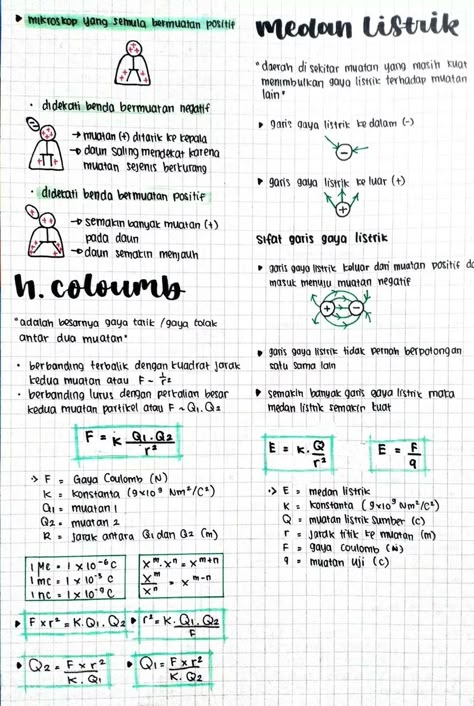 ▸ mikroskop yang semula bermuatan positif
• didekati benda bermuatan negatif
→ muatan (+) ditarik ke kepala
→ daun saling mendekat karena
muatan sejenis berkurang
• didekati benda bermuatan positif
→ semakin banyak muatan (+)
pada daun
→ daun semakin menjauh
h. coloumb
"adalah besarnya gaya tarik / gaya tolak
antar dua muatan"
• berbanding terbalik dengan kuadrat jarak
kedua muatan atau F ~ 1/r²
• berbanding lurus dengan perkalian besar
kedua muatan partikel atau F ~ Q₁.Q₂
F = K Q₁.Q₂/r²
-> F = Gaya Coulomb (N)
K = konstanta (9×10⁹ Nm²/C²)
Q₁ = muatan 1
Q₂ = muatan 2
R = jarak antara Q₁ dan Q₂ (m)
1 Mc = 1 x 10⁻⁶ C
1 mc = 1 x 10⁻³ C
1 nc = 1 x 10⁻⁹ C
xᵐ.xⁿ = xᵐ⁺ⁿ
xᵐ/xⁿ = xᵐ⁻ⁿ
▸ F x r² = K.Q₁.Q₂
▸ r² = K.Q₁.Q₂/F
▸ Q₂ = F x r²/K.Q₁
▸ Q₁ = F x r²/K.Q₂
medan listrik
"daerah di sekitar muatan yang masih kuat
menimbulkan gaya listrik terhadap muatan
lain"
▸ garis gaya listrik ke dalam (-)
▸ garis gaya listrik ke luar (+)
sifat garis gaya listrik
▸ garis gaya listrik keluar dari muatan positif
masuk menuju muatan negatif
▸ garis gaya listrik tidak pernah berpotongan
satu sama lain
▸ semakin banyak garis gaya listrik maka
medan listrik semakin kuat
E = K.Q/r²
E = F/q
-> E = medan listrik
K = konstanta (9x10⁹ Nm²/C²)
Q = muatan listrik sumber (c)
r = jarak titik ke muatan (m)
F = gaya coulomb (N)
q = muatan uji (c)